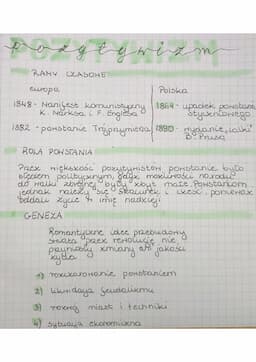 pozytywizm
RAMY CZASOWE
europa
Polska
1848 - Manifest komunistyczny
K. Marksa i F. Englesa
1864 - upadek powstania
styczniowego
1882 - powstanie Trójprzymierza
1890 - wydanie "Lalki"
B. Prusa
ROLA POWSTANIA
Przez większość pozytywistów powstanie było
błędem politycznym, gdyż możliwości narodu
do walki zbrojnej były zbyt małe. Powstańcom
jednak należy się szacunek i cześć, ponieważ
oddali życie w imię nadziei
GENEZA
Romantyczne idee przebudowy
świata przez rewolucję nie
przyniosły zmiany jakości
życia
1) rozczarowanie powstaniem
2) likwidacja feudalizmu
3) rozwój miast i techniki
4) sytuacja ekonomiczna